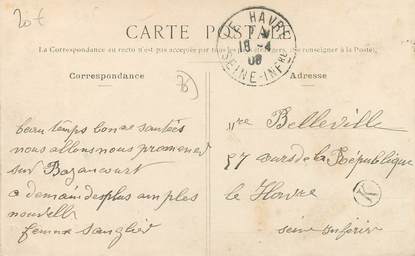 20€
CARTE POSTALE
La Correspondance au recto n'est pas acceptée par tous les pays étrangers, se renseigner à la Poste
LE HAVRE
18-4
08
SEINE-INFRE
Correspondance
Adresse
beau temps bonne santées
nous allons nous promener
sur Bazancourt
a demain des plus amples
nouvelle
femme Sanglier
Belleville
57 cours de la République
le Havre
seine inferir